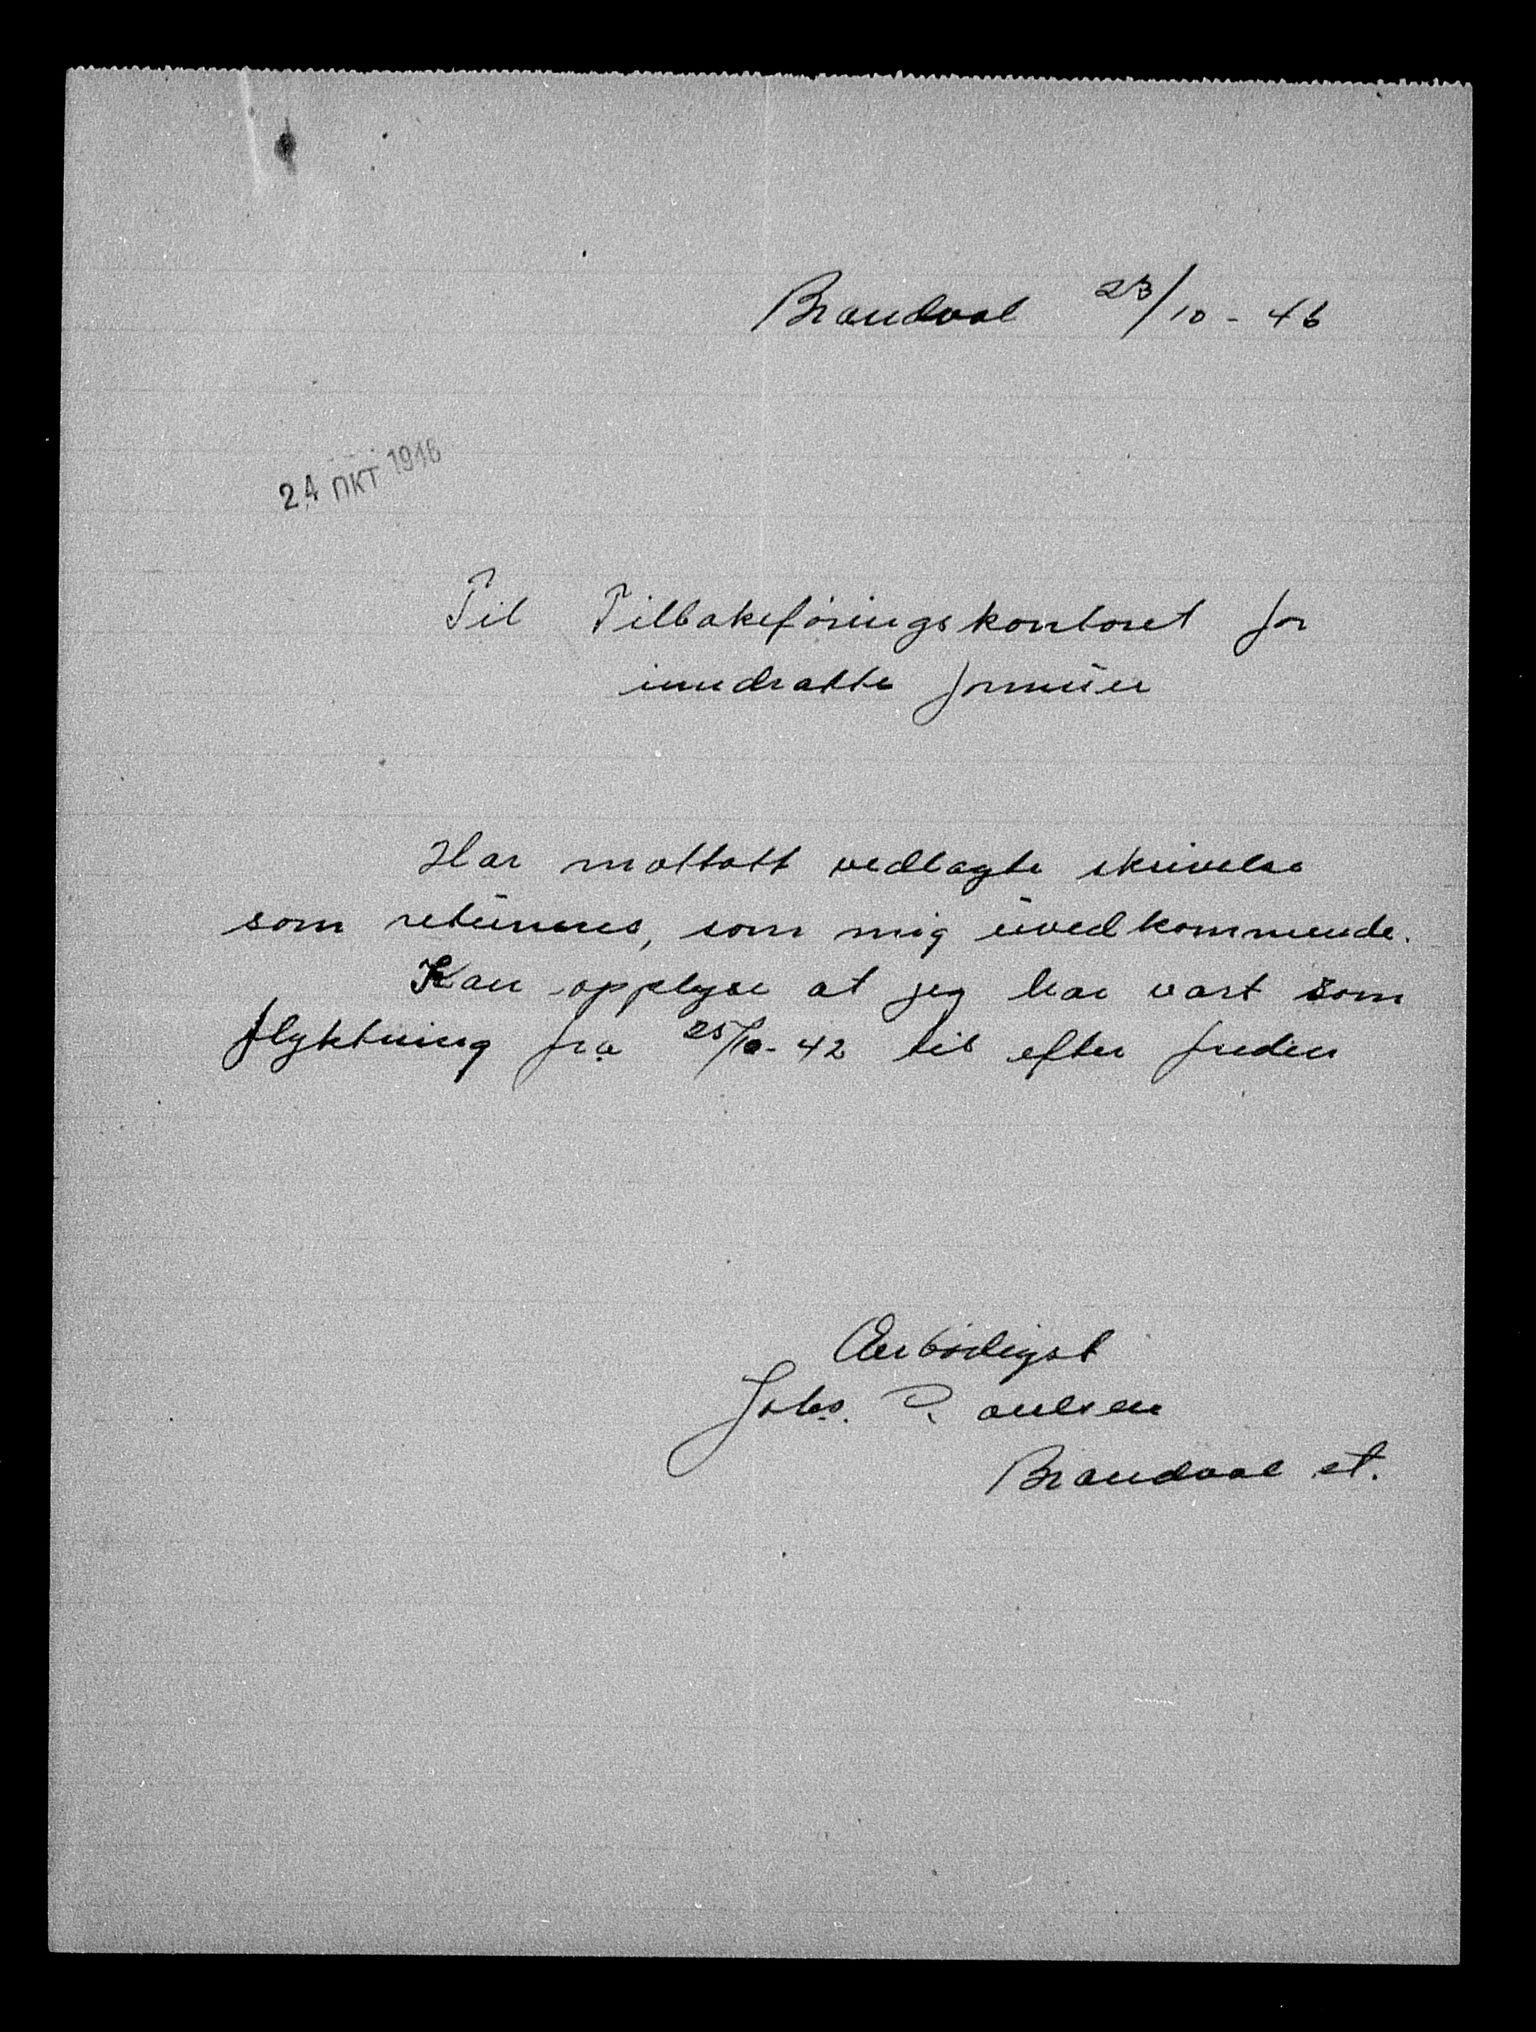 Brandval 23/10 - 46
24 OKT 1946
Til Tilbakeføringskontoret for
inndratte formuer
Har mottatt vedlagte skrivelse
som returneres, som mig uvedkommende.
Kan opplyse at jeg har vært som
flyktning fra 25/10 - 42 til efter freden
Ærbødigst
Johs. Paulsen
Brandval st.